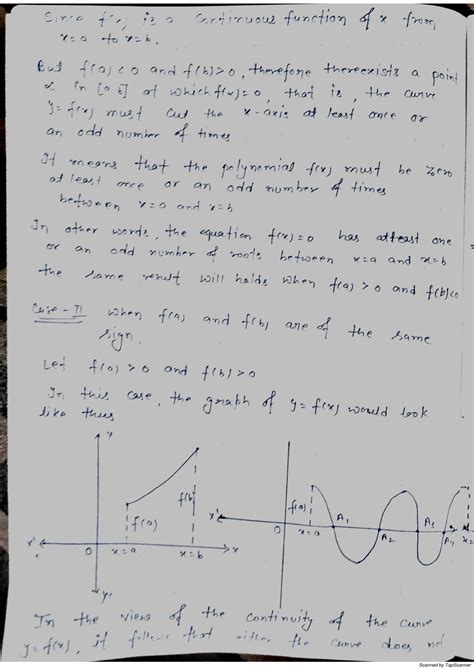 Since f(x) is a Continuous function of x from
x=a to x=b.
But f(a)<0 and f(b)>0, therefore thereexists a point
α in [a b] at which f(α)=0, that is, the curve
y=f(x) must Cut the x-axis at least once or
an odd number of times
It means that the polynomial f(x) must be zero
at least once or an odd number of times
between x=a and x=b
In other words, the equation f(x)=0 has atleast one
or an odd number of roots between x=a and x=b
the same result will holds when f(a) >0 and f(b)<0
Case-II when f(a) and f(b) are of the same
sign.
Let f(a) >0 and f(b) >0
In this case, the graph of y=f(x) would look
like thus
y
f(a)
f(b)
x'
O
x=a
x=b
x
y'
f(a)
x'
O
x=a
A1
A2
A3
A4
x=
In the view of the continuity of the curve
y=f(x), it follows that either the curve does not
Scanned by TapScanner